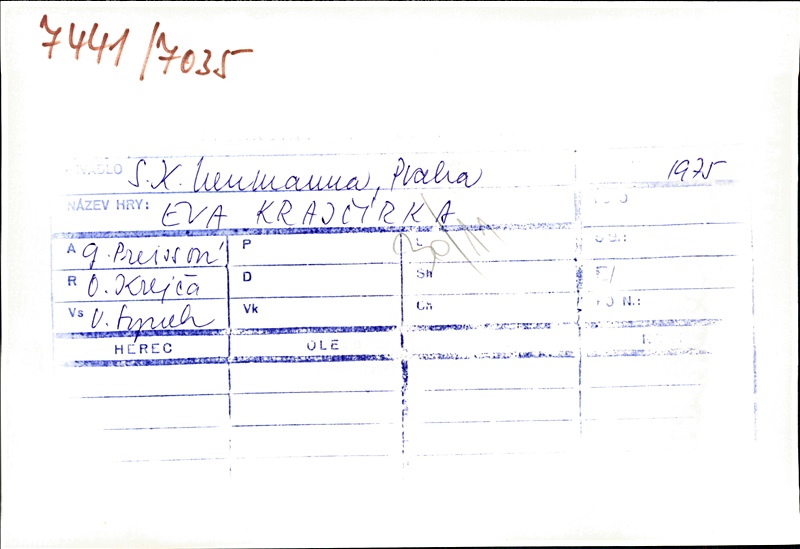 7441/7035
DIVADLO S.K. Neumanna, Praha 1975
NÁZEV HRY: EVA KRAJČÍRKA
30/11
A G. Preissová P L
R O. Krejča D Sh
Vs V. Ch
Vk
HEREC OLE